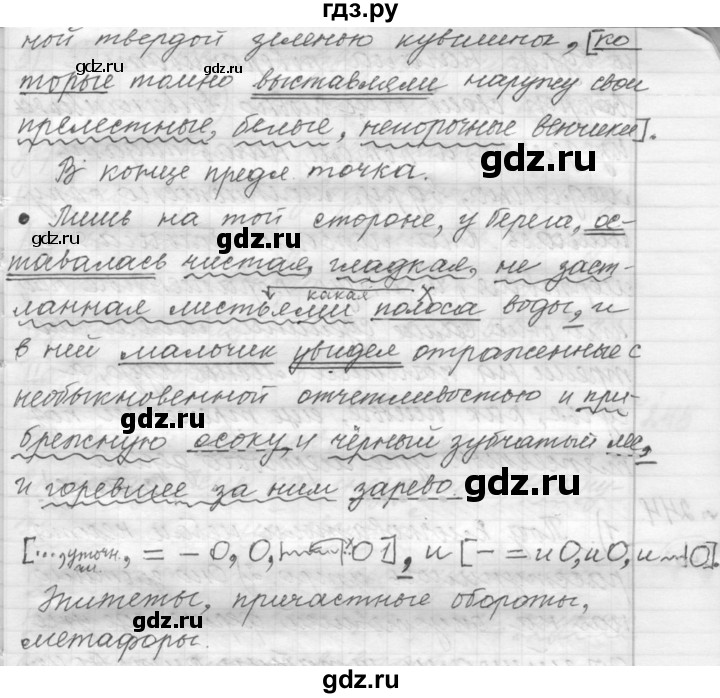 гдз.ру
ной твердой зеленою кувшины, [ко
торые томно выставляли наружу свои
gdz.ru
прелестные, белые, непорочные венчики].
gdz.ru
В конце предл. точка.
• Лишь на той стороне, у берега, ос-
gdz.ru
gdz.ru
тавалась чистая, гладкая, не заст-
какая х
ланная листьями полоса воды, и
в ней мальчик увидел отраженные с
gdz.ru
необыкновенной отчетливостью и при-
gdz.ru
брежную осоку, и чёрный зубчатый лес,
и горевшее за ним зарево.
gdz.ru
[..., уточн., = – О, О, |О|], и [– = и О, и О, и |О|].
Эпитеты, причастные обороты,
метафоры.
gdz.ru